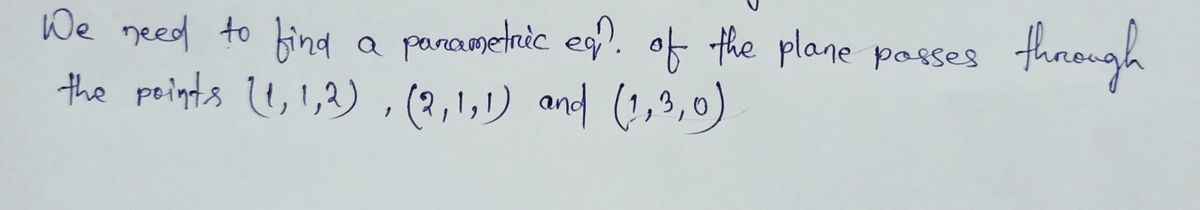 We need to find a parametric eqⁿ. of the plane passes through
the points (1,1,2) , (2,1,1) and (1,3,0)